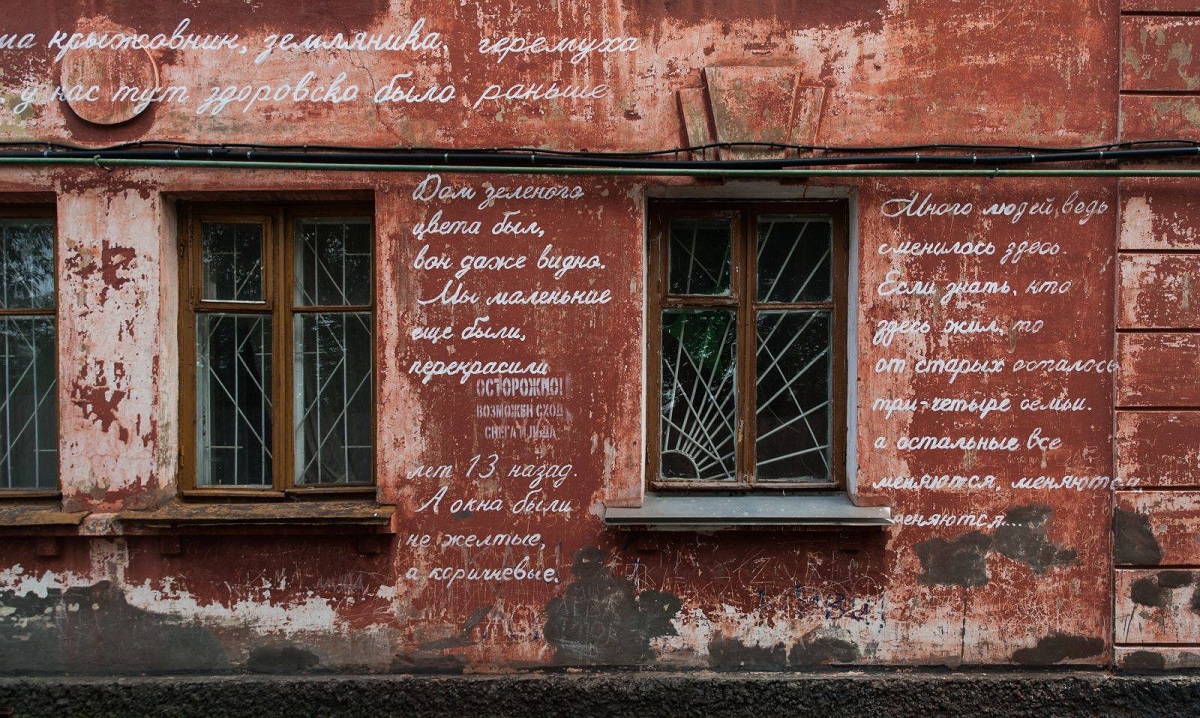 крыжовник, земляника, черемуха
у нас тут здоровско было раньше
Дом зеленого
цвета был,
вон даже видно.
Мы маленькие
еще были,
перекрасили
ОСТОРОЖНО!
ВОЗМОЖЕН СХОД
СНЕГА И ЛЬДА
лет 13 назад.
А окна были
не желтые,
а коричневые.
Много людей, ведь
сменилось здесь.
Если знать, кто
здесь жил, то
от старых осталось
три-четыре семьи.
а остальные все
меняются, меняются
меняются...